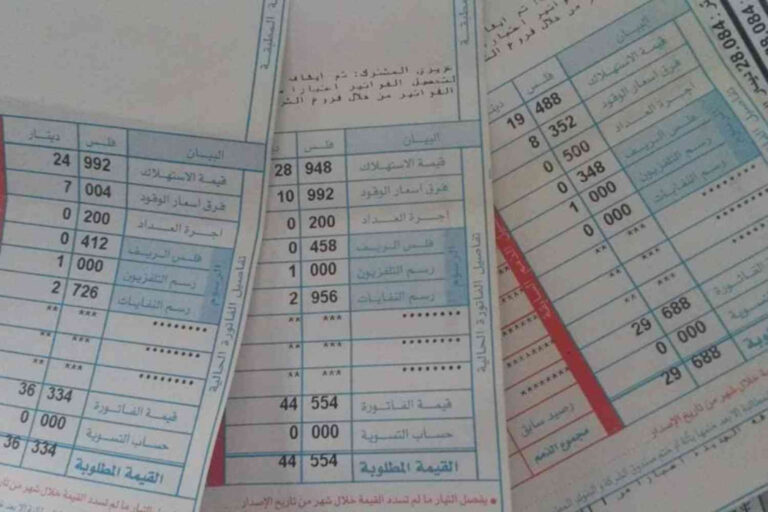 البيان فلس دينار
قيمة الاستهلاك 992 24
فرق أسعار الوقود 004 7
اجرة العداد 200 0
فلس الريف 412 0
رسم التلفزيون 000 1
رسم النفايات 726 2
الرسوم
******** *** **
******** *** **
******** *** **
قيمة الفاتورة 334 36
حساب التسوية 000 0
القيمة المطلوبة 334 36
تفاصيل الفاتورة الحالية
عزيزي المشترك: تم ايقاف
لتحصيل الفواتير اعتبارا م
الفواتير من خلال فروع الشر
البيان فلس د
قيمة الاستهلاك 948 28
فرق أسعار الوقود 992 10
اجرة العداد 200 0
فلس الريف 458 0
رسم التلفزيون 000 1
رسم النفايات 956 2
الرسوم
******** *** **
******** *** **
******** *** **
قيمة الفاتورة 554 44
حساب التسوية 000 0
القيمة المطلوبة 554 44
تفاصيل الفاتورة الحالية
يفصل التيار ما لم تسدد القيمة خلال شهر من تاريخ الإصدار
28.084
البيان فلس
قيمة الاستهلاك 488 19
فرق أسعار الوقود 352 8
اجرة العداد 500 0
فلس الريف 348 0
رسم التلفزيون 000 1
رسم النفايات 000 0
******** *** **
******** *** **
******** *** **
الفاتورة 688 29
تسوية 000 0
688 29
رصيد سابق
مجموع الذمم